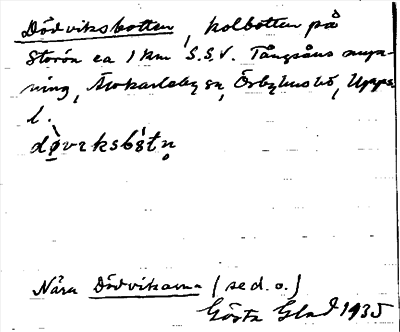 Dödviksbotten, kolbotten på
Storön ca 1 km S.S.V. Tångsåns myn-
ning, Älvkarleby sn, Örbyhus hd, Uppsa
l.
Nära Dödvikarna (se d. o.)
Gösta Glad 1935